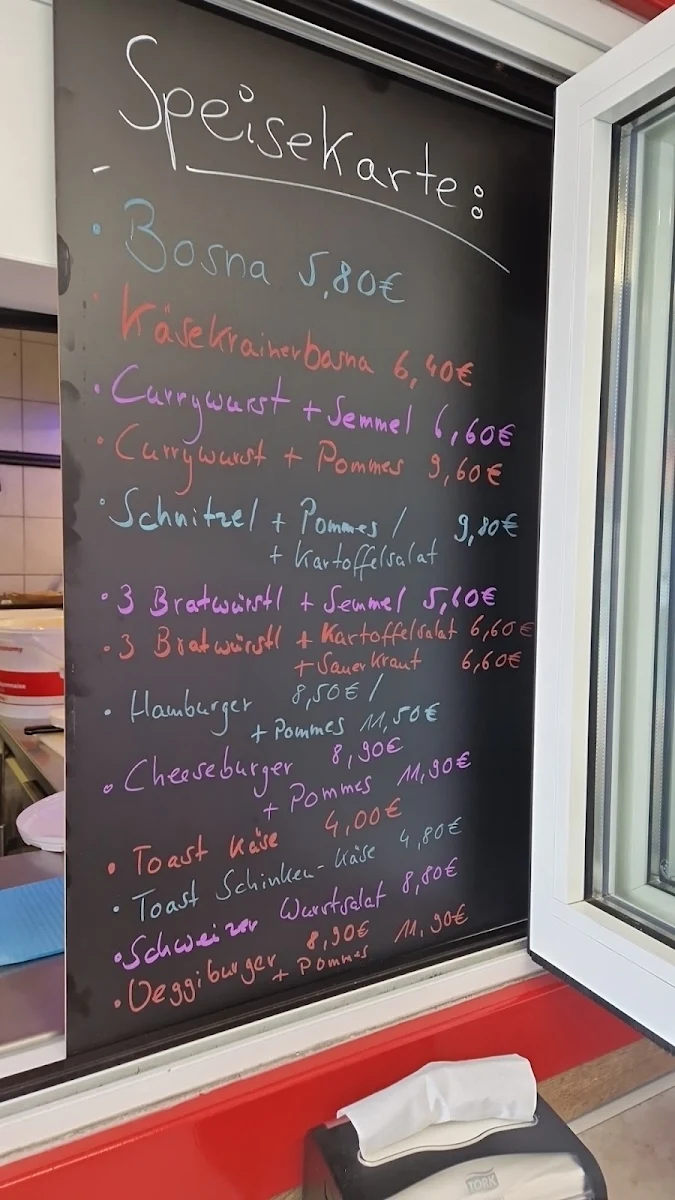 Speisekarte:
Bosna 5,80€
Käsekrainerbosna 6,40€
Currywurst + Semmel 6,60€
Currywurst + Pommes 9,60€
Schnitzel + Pommes / 9,80€
+ Kartoffelsalat
3 Bratwürstl + Semmel 5,60€
3 Bratwürstl + Kartoffelsalat 6,60€
+ Sauerkraut 6,60€
Hamburger 8,50€ /
+ Pommes 11,50€
Cheeseburger 8,90€
+ Pommes 11,90€
Toast Käse 4,00€
Toast Schinken-Käse 4,80€
Schweizer Wurstsalat 8,80€
Veggiburger 8,90€ 11,90€
+ Pommes
TORK